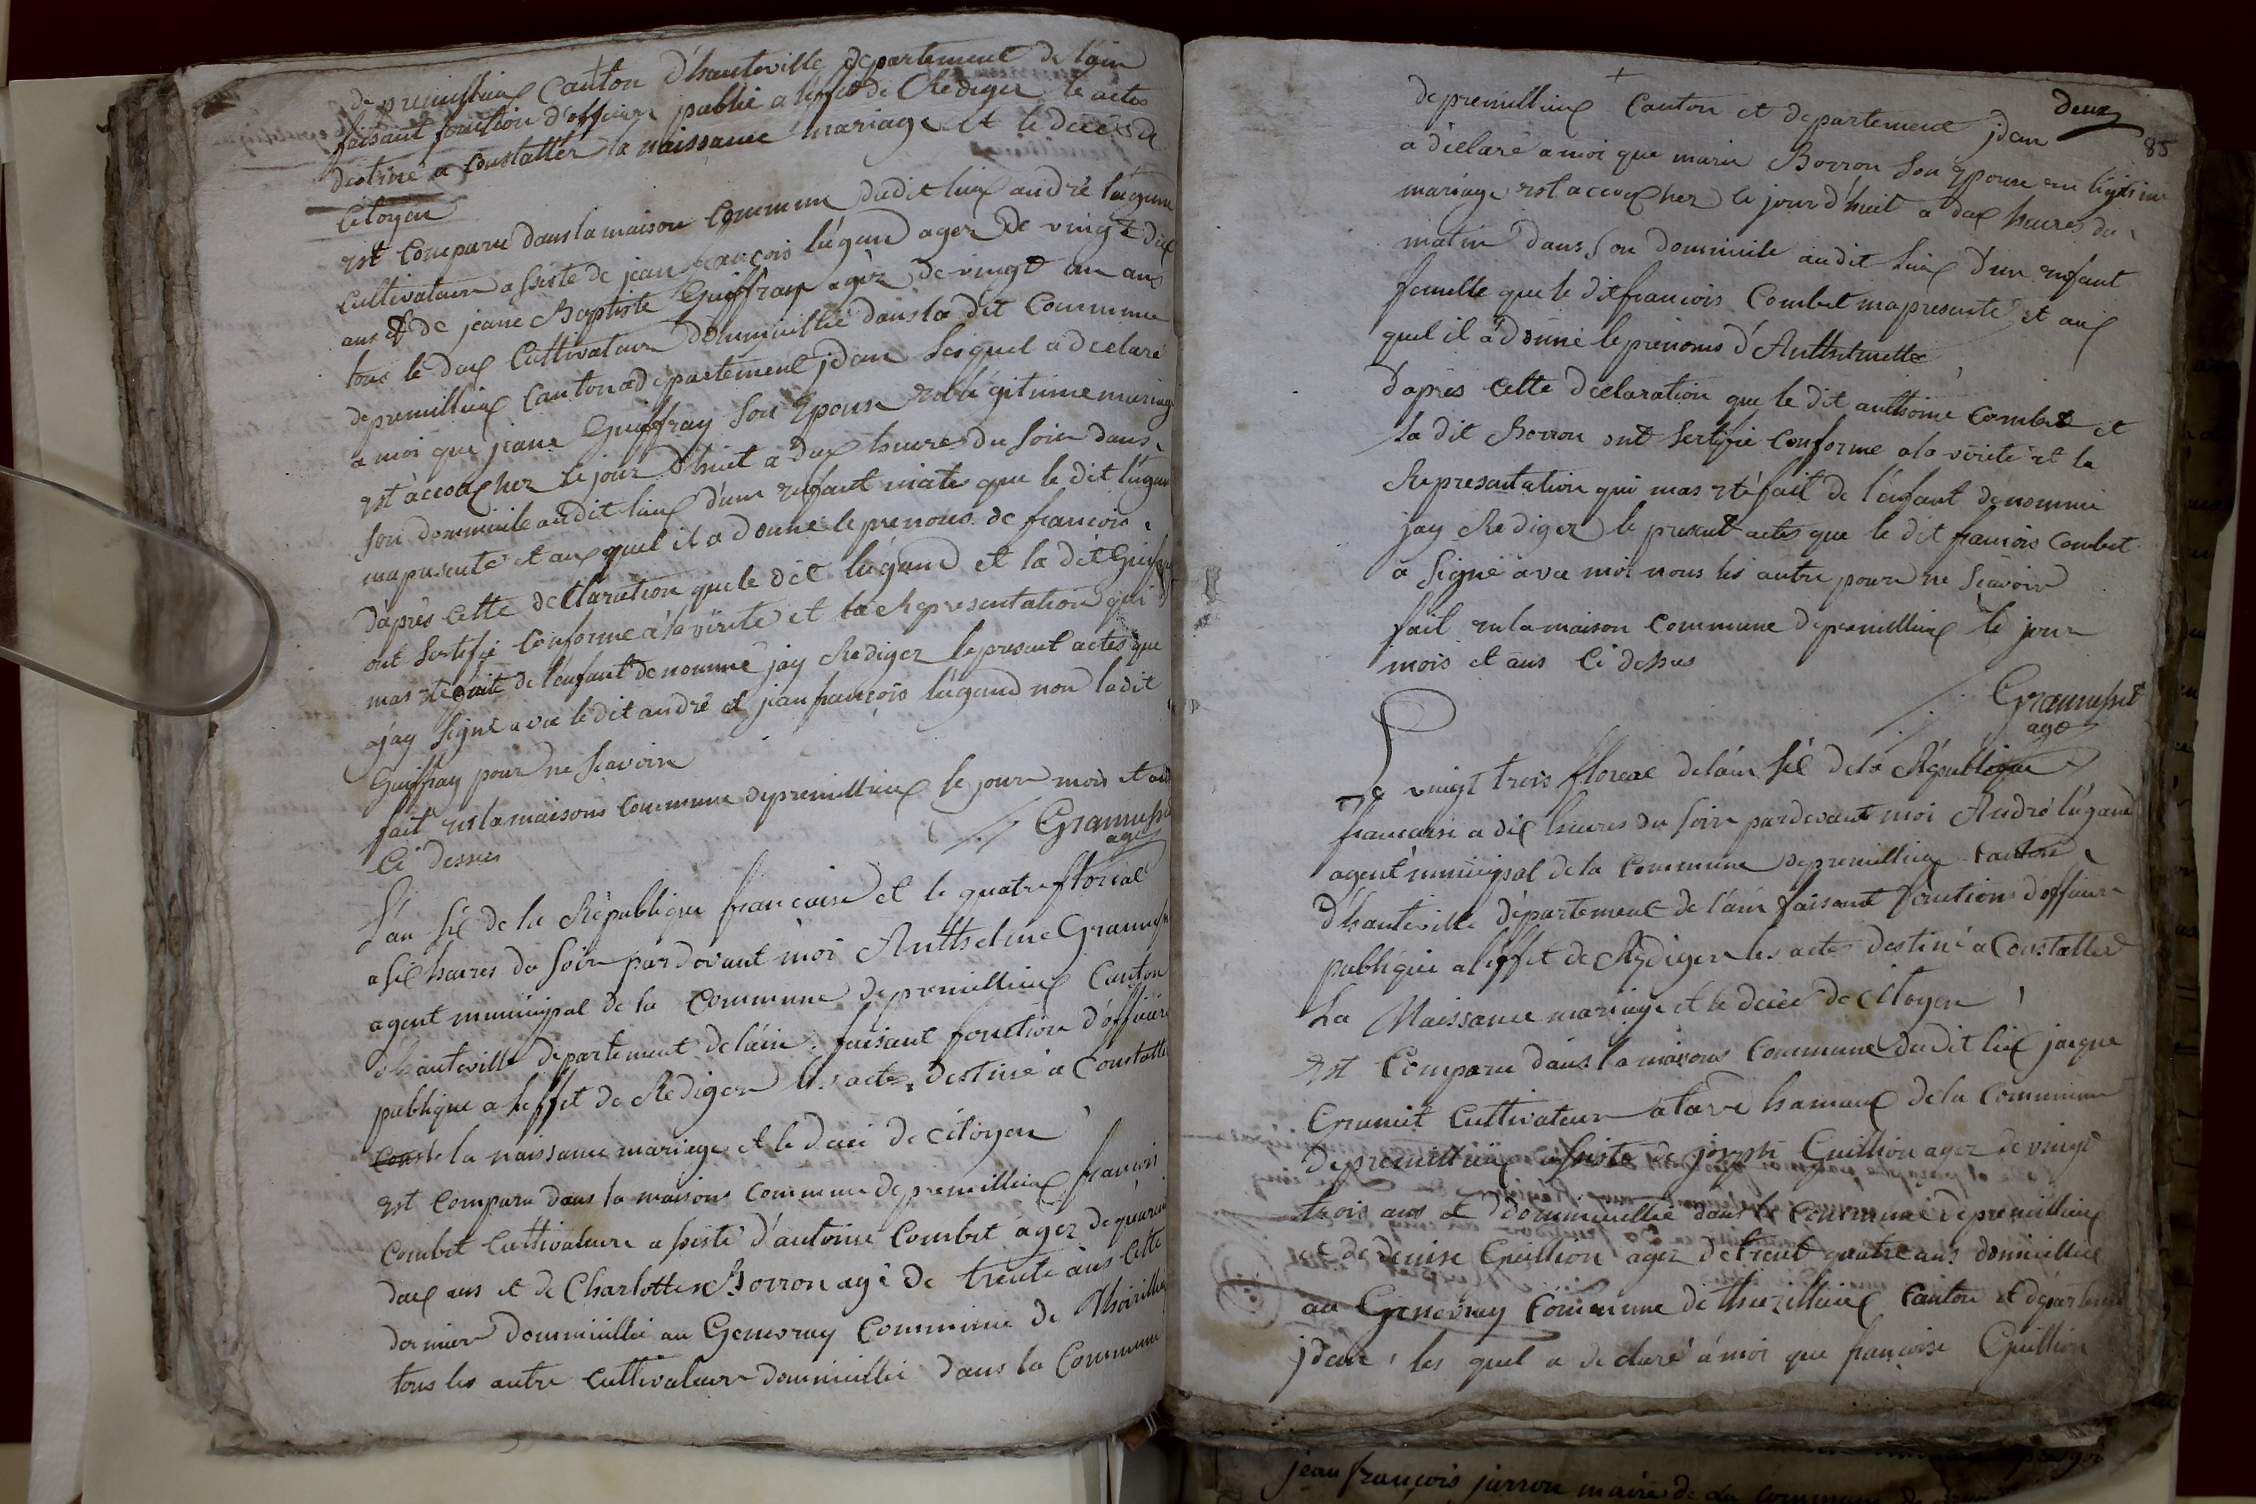 de premillieux Canton d'hauteville departement de lain
faisant fonction d'officier public a leffet de Rediger le actes
destiné a Constatter la naissance mariage et le déces de
Citoyen
est Comparu dans la maison Commune dudit lieux andré lúgand
Cultivateur assisté de jean françois lúgand agez de vingt dix
ans et de jeane Baptiste Guiffray agéz de vingt un ans
tous le deux Cultivateur domicillié dans la dit Commune
de premillieux Canton et departement jdem lesquel a declaré
a moi que jeane Guiffray son Epouse en légitime mariage
est accoucher le jour d'huit a deux heures du soir dans
son domicile audit lieux d'un enfant male que le dit lúgand
ma presenté et aux quel il a donné le prenoms de francois
daprès cette declaration que le dit lúgand et la dit Guiffray
ont sertifié Conforme a la vérité et la Representation qui
mas eté faite de lenfant denommé jay Rediger le present actes que
jay signé avec le dit andré et jean françois lúgand non la dit
Guiffray pour ne scavoir
fait en la maisons Commune de premillieux le jour mois et ans
Ci dessus
Grammusset
agt
L'an six de la République francaise et le quatre floréal
a six heures du soir pardevant moi Anthelme Grammusset
agent municipal de la Commune de premillieux Canton
d'hauteville departement de l'ain faisant fonction d'officier
publique a leffet de Rediger les actes destiné a Constatter
const la naissance mariage et le decé de citoyen
est comparu dans la maisons commune de premillieux francois
Combet Cultivateur assisté d'antoine Combet agez de quarante
deux ans et de Charlotte Borron agé de trente ans cette
dernier domicillié au Genevray Commune de Thézillieux
tous les autre cultivateur domicillié dans la Commune
deux
85
de premillieux Canton et departement jdem
a déclaré a moi que marie Borron son Epouse en légitime
mariage est accoucher le jour d'huit a deux heures du
matin dans son domicile audit lieux d'un enfant
femelle que le dit francois Combet ma presenté et aux
quel il a donné le prénoms d'Anthelmette
daprès cette déclaration que le dit anthoine Combet et
la dit Borron ont sertifié Conforme a la vérité et la
Representation qui mas eté fait de l'enfant denommé
jay Rediger le present actes que le dit francois Combet
a signé avec moi nous les autre pour ne scavoir
fait en la maison Commune de premillieux le jour
mois et ans Ci dessus
Grammusset
agt
Le vingt trois floréal de lain six de la République
francaise a dix heures du soir pardevant moi André lúgand
agent municipal de la Commune de premillieux Canton
d'hauteville département de l'ain faisant fonction d'officier
publique a leffet de Rediger les actes destiné a Constatter
La Naissance mariage et le décée de Citoyen
est Comparu dans la maisons Commune dudit lieux jacque
Grumet Cultivateur a lavé hamaux de la Commune
de premillieux assisté de joseph Guillion agez de vingt
trois ans et domicillié dans la Commune de premillieux
et de denise Guillion agez de trent quatre ans domicilliée
au Genevray Commune de thezillieux Canton et département
jdem, les quel a declaré a moi que françoise Guillion
jean françois jurron maire de la Commune de